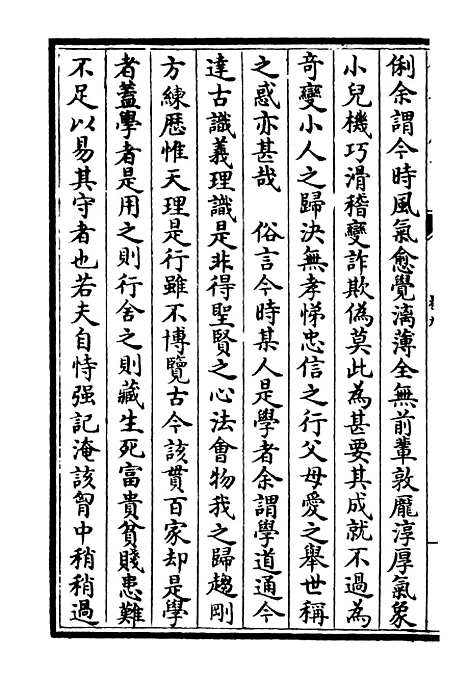 俐余謂今時風氣愈覺漓薄全無前輩敦龐淳厚氣象
小兒機巧滑稽變詐欺偽莫此為甚要其成就不過為
奇變小人之歸決無孝悌忠信之行父母愛之舉世稱
之惑亦甚哉　俗言今時某人是學者余謂學道通今
達古識義理識是非得聖賢之心法會物我之歸趨剛
方練歷惟天理是行雖不博覽古今該貫百家却是學
者蓋學者是用之則行舍之則藏生死富貴貧賤患難
不足以易其守者也若夫自恃强記淹該胷中稍稍過